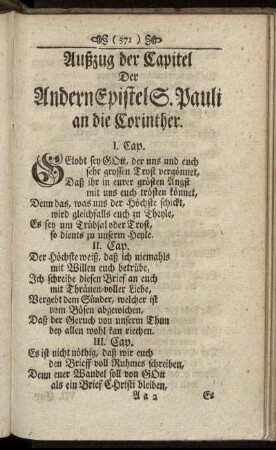 ( 371 )
Außzug der Capitel
Der
Andern Epistel S. Pauli
an die Corinther.
I. Cap.
GElobt sey GOtt, der uns und euch
sehr grossen Trost vergönnet,
Daß ihr in eurer grösten Angst
mit uns euch trösten könnet,
Denn das, was uns der Höchste schickt,
wird gleichfalls euch zu Theyle,
Es sey um Trübsal oder Trost,
so dients zu unserm Heyle.
II. Cap.
Der Höchste weiß, daß ich niemahls
mit Willen euch betrübe,
Ich schreibe diesen Brief an euch
mit Thränen-voller Liebe,
Vergebt dem Sünder, welcher ist
vom Bösen abgewichen,
Daß der Geruch von unserm Thun
bey allen wohl kan riechen.
III. Cap.
Es ist nicht nöthig, daß wir euch
den Brieff voll Ruhmes schreiben,
Denn euer Wandel soll von GOtt
als ein Brief CHristi bleiben,
A a 2 Es